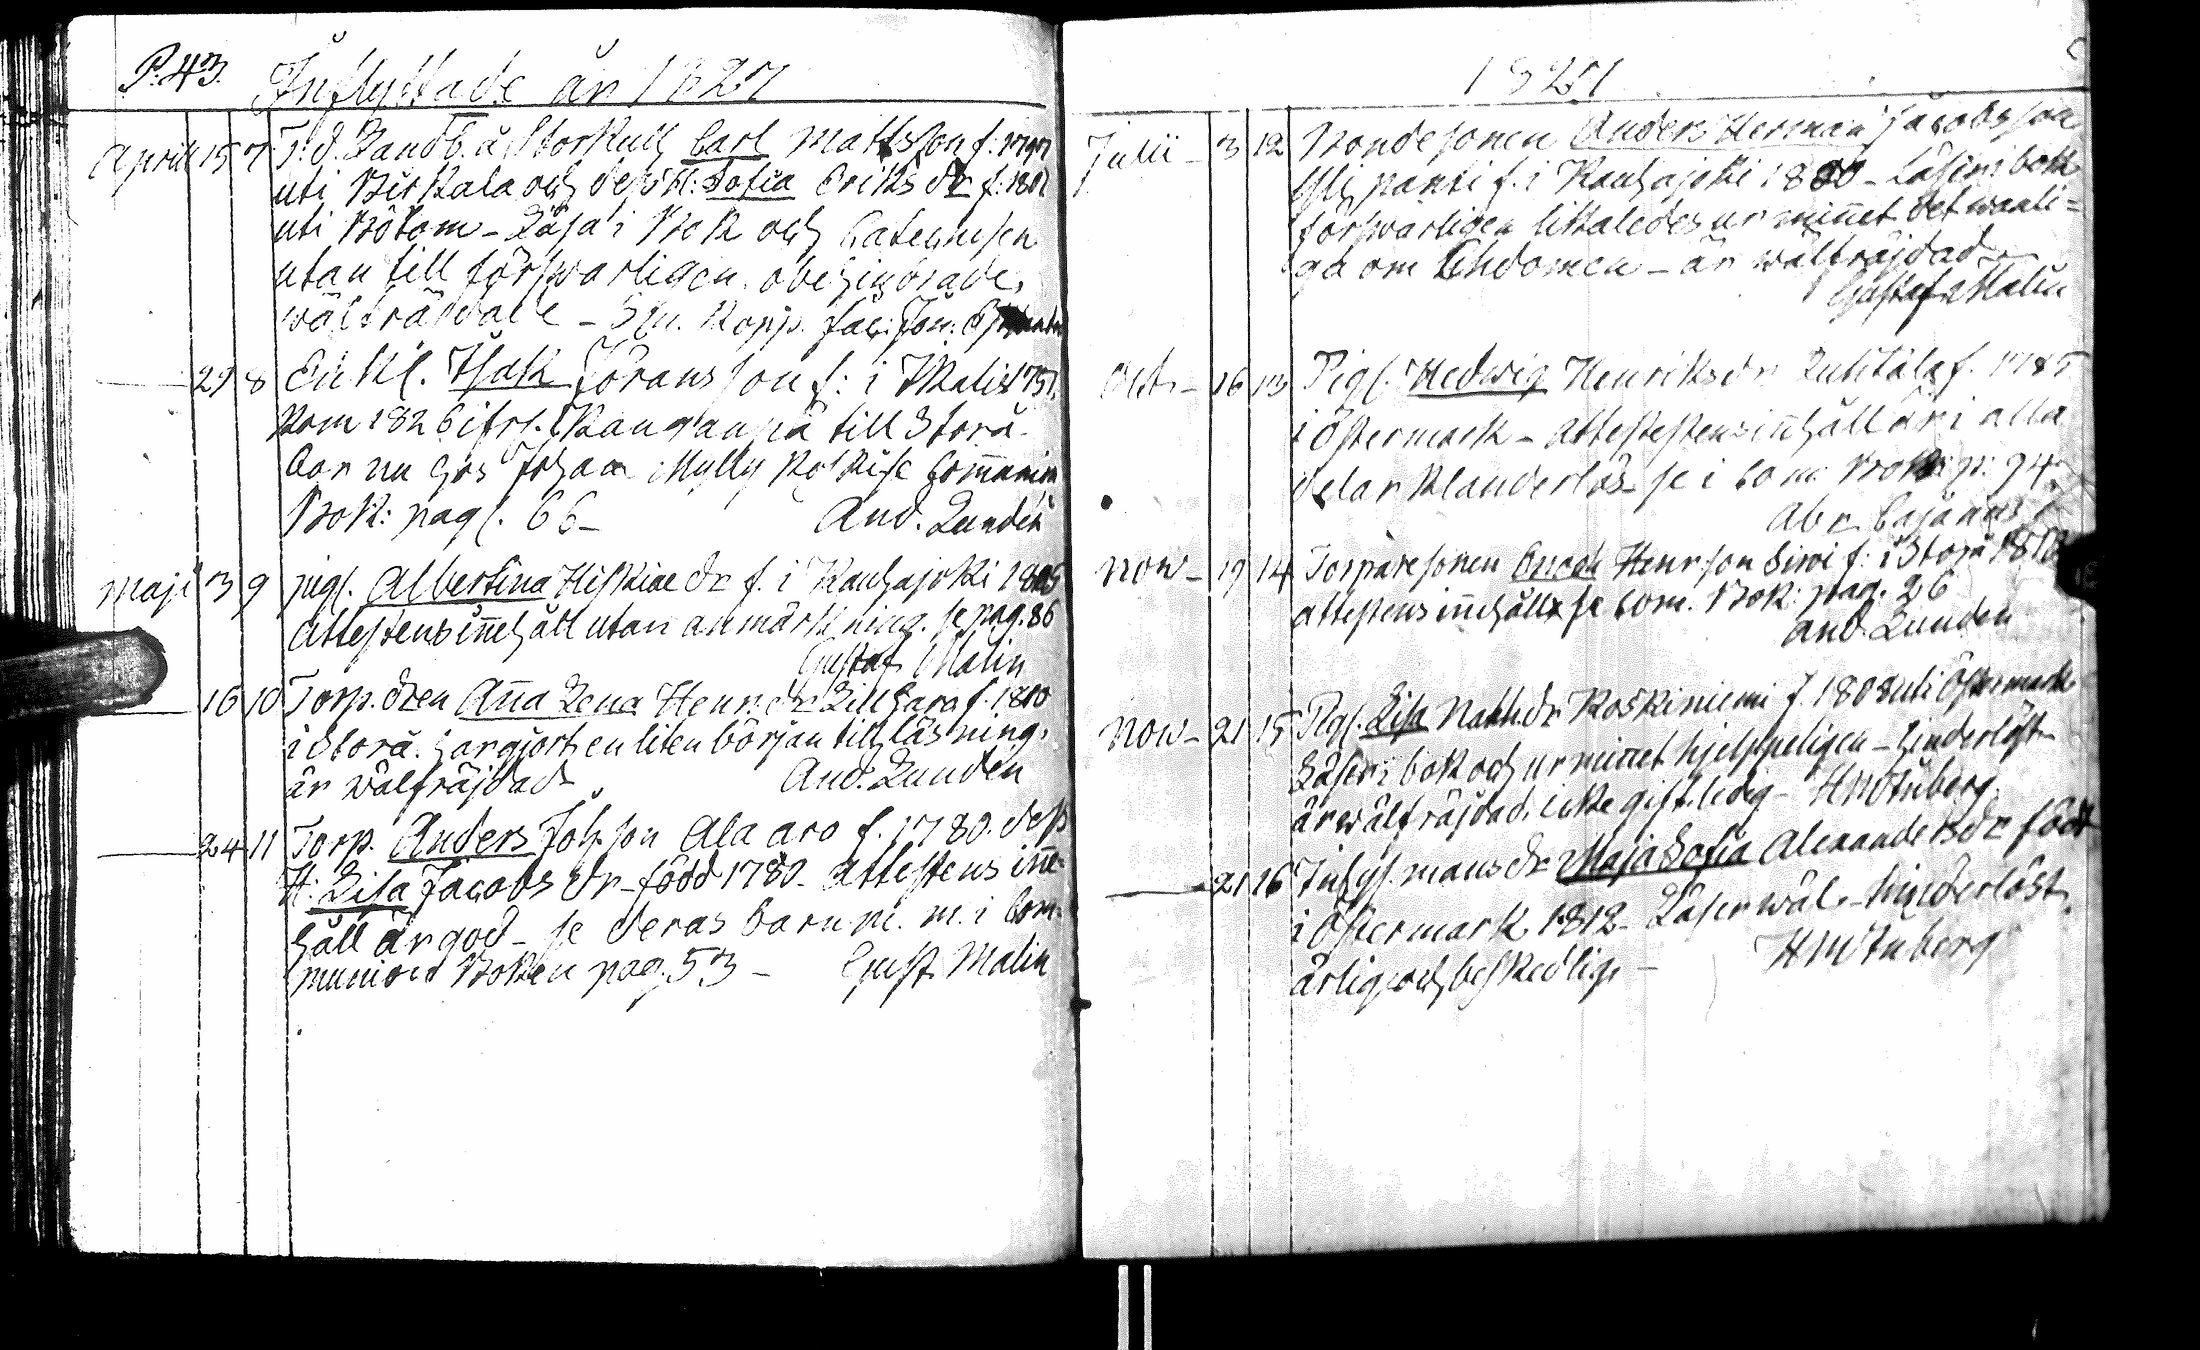 P. 43. Inflyttade år 1827
April 15 7 T. d. Landb. å Storkull Carl Mattsson f: 1797
uti Birkala och dess H: Sofia Eriks dr f: 1801
uti Bötom - Läsa i Bok och Catechesen
utan till förswarligen. obehindrade,
wälfräjdade - Sku. Kopp. Jac: Jon:
29 8 Enkl. Isak Jöransson f: i Malis 1751
kom 1826 ifrl. Kanganpä till Storå
nu hos Johan Mylly koski se Communion
Bok: pag. 66 - And. Lundén
Maji 3 9 pigl. Albertina Hiskiae dr f. i Kauhajoki 1805
attestens inehåll utan anmärkning. se pag. 86
Gustaf Malin
16 10 Torp. dren Aña Lena Henr: dr Lillhara f. 1810
i Storå. har gjort en liten början till läsning,
är wälfräjdad And. Lunden
24 11 Torp. Anders Joh. son Ala aro f. 1780. dess
H: Lisa Jacobs dr - född 1780 - attestens ine-
håll är god - se deras barn m. m. i Com-
munions Boken pag. 53 - Gust. Malin
1827
Julii - 3 12 Bondesonen Anders Herman Jacobsson
Yli panti f. i Kauhajoki 1800 - Läser i bok
förswarligen likaledes ur miñet det wanli=
ga om Chdomen - är wälfräjdad -
Gustaf Malin
Octr - 16 13 Pigl. Hedwig Henriksdr Luhtala f. 1785
i Östermark - attestens iñehåll är i alla
delar klanderlös - se i Com: Bok: p: 94.
Abr. Cajanus
Now - 19 14 Torparesonen Enoch Henr. son Sirvi f: i Storå 1813
attestens iñehåll se Com. Bok: pag. 26
And. Lunden
Now - 21 15 Pigl. Lisa Matth. dr Koskiniemi f. 1808 uti Östermark
Läser i bok och ur miñet hjelpeligen - hinderlöst
är wälfräjdad. icke gift. ledig - HM Tunberg
- 21 16 Inhys. mans dr Maja Sofia Alexandersdr född
i Östermark 1812 - Läser wäl - hinderlöst,
ärlig och beskedlig. - HM Tunberg